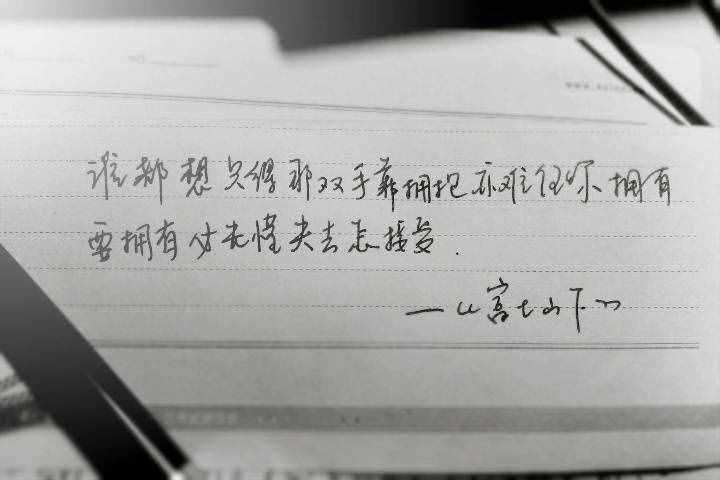 谁都想只得那双手靠拥抱亦难任你拥有
要拥有必先懂失去怎接受.
—《富士山下》